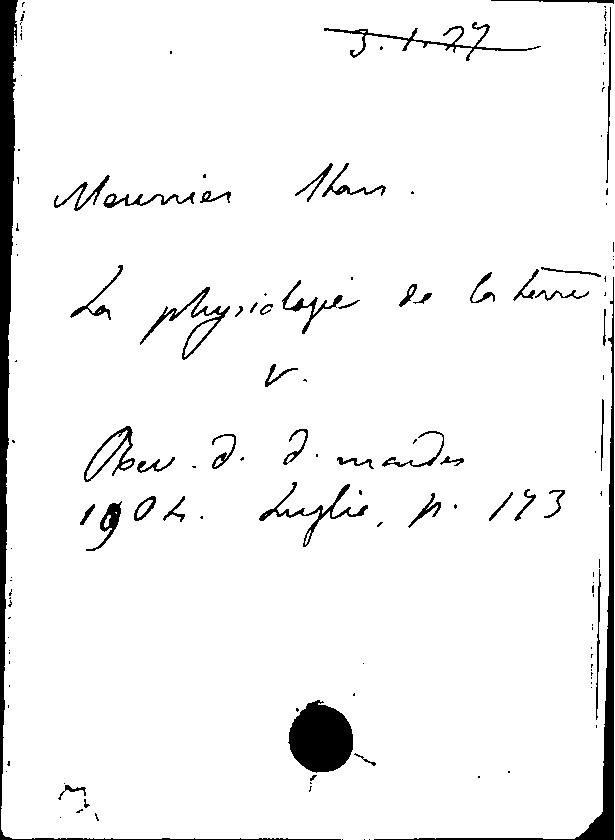 3.1.27
Meunier Stan.
La physiologie de la terre
V.
Rev. d. d. mondes
1904. Luglio, p. 173